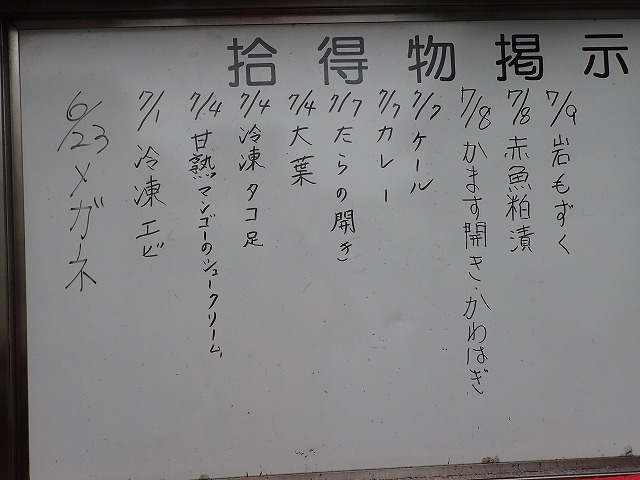 拾得物掲示
7/9 岩もずく
7/8 赤魚粕漬
7/8 かます開き・かわはぎ
7/7 ケール
7/7 カレー
7/7 たらの開き
7/4 大葉
7/4 冷凍タコ足
7/4 甘熟マンゴーのシュークリーム
7/1 冷凍エビ
6/23 メガーネ